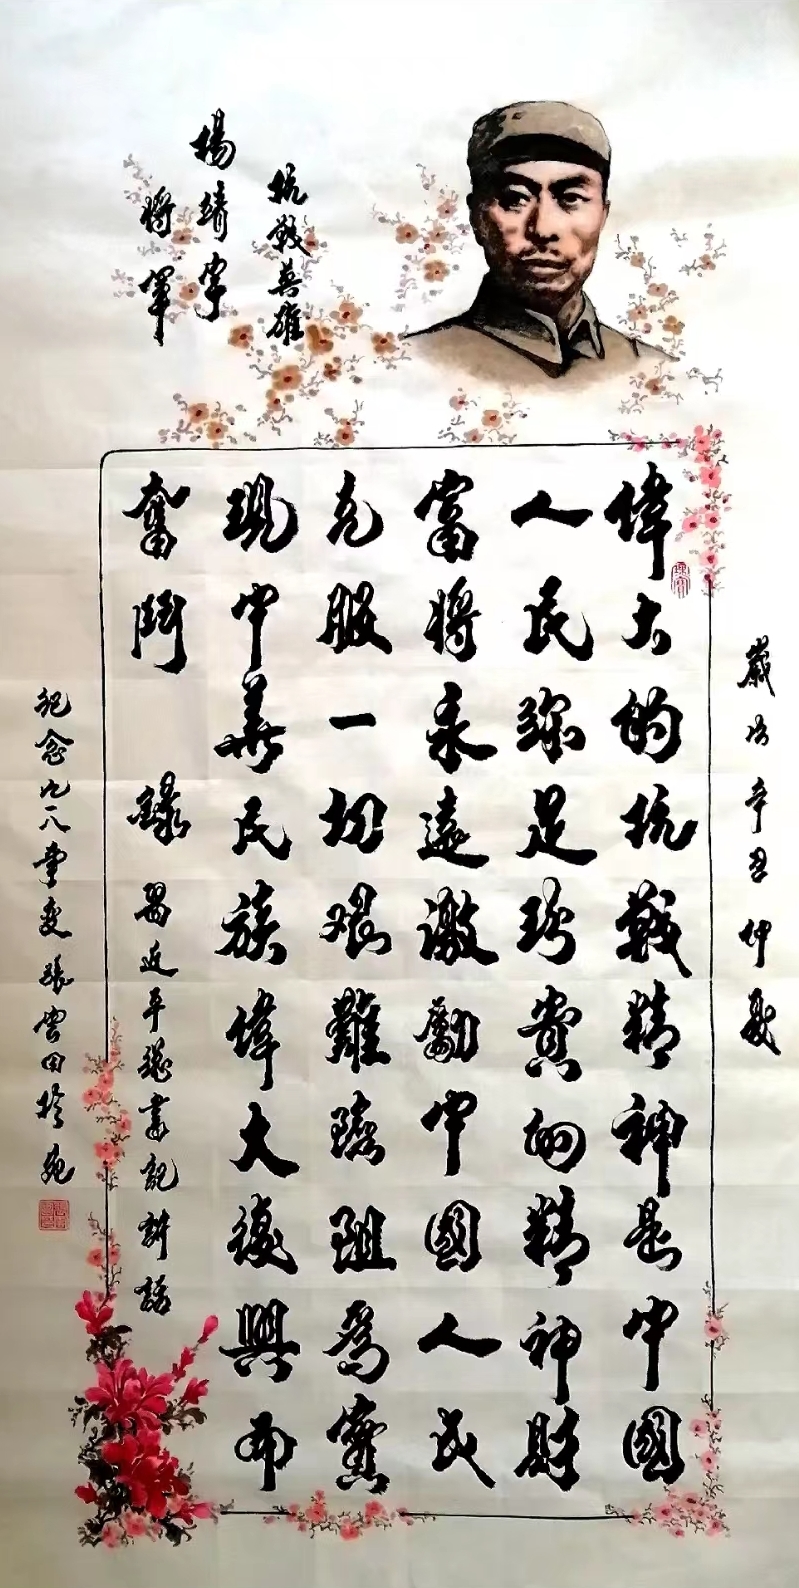 抗戰英雄
楊靖宇
將軍
歲次辛丑仲
偉大的抗戰精神是中國
人民彌足珍貴的精神財
富將永遠激勵中國人民
克服一切艱難險阻爲實
現中華民族偉大復興而
奮鬥 錄習近平總書記講話
紀念九一八事變張雲田於